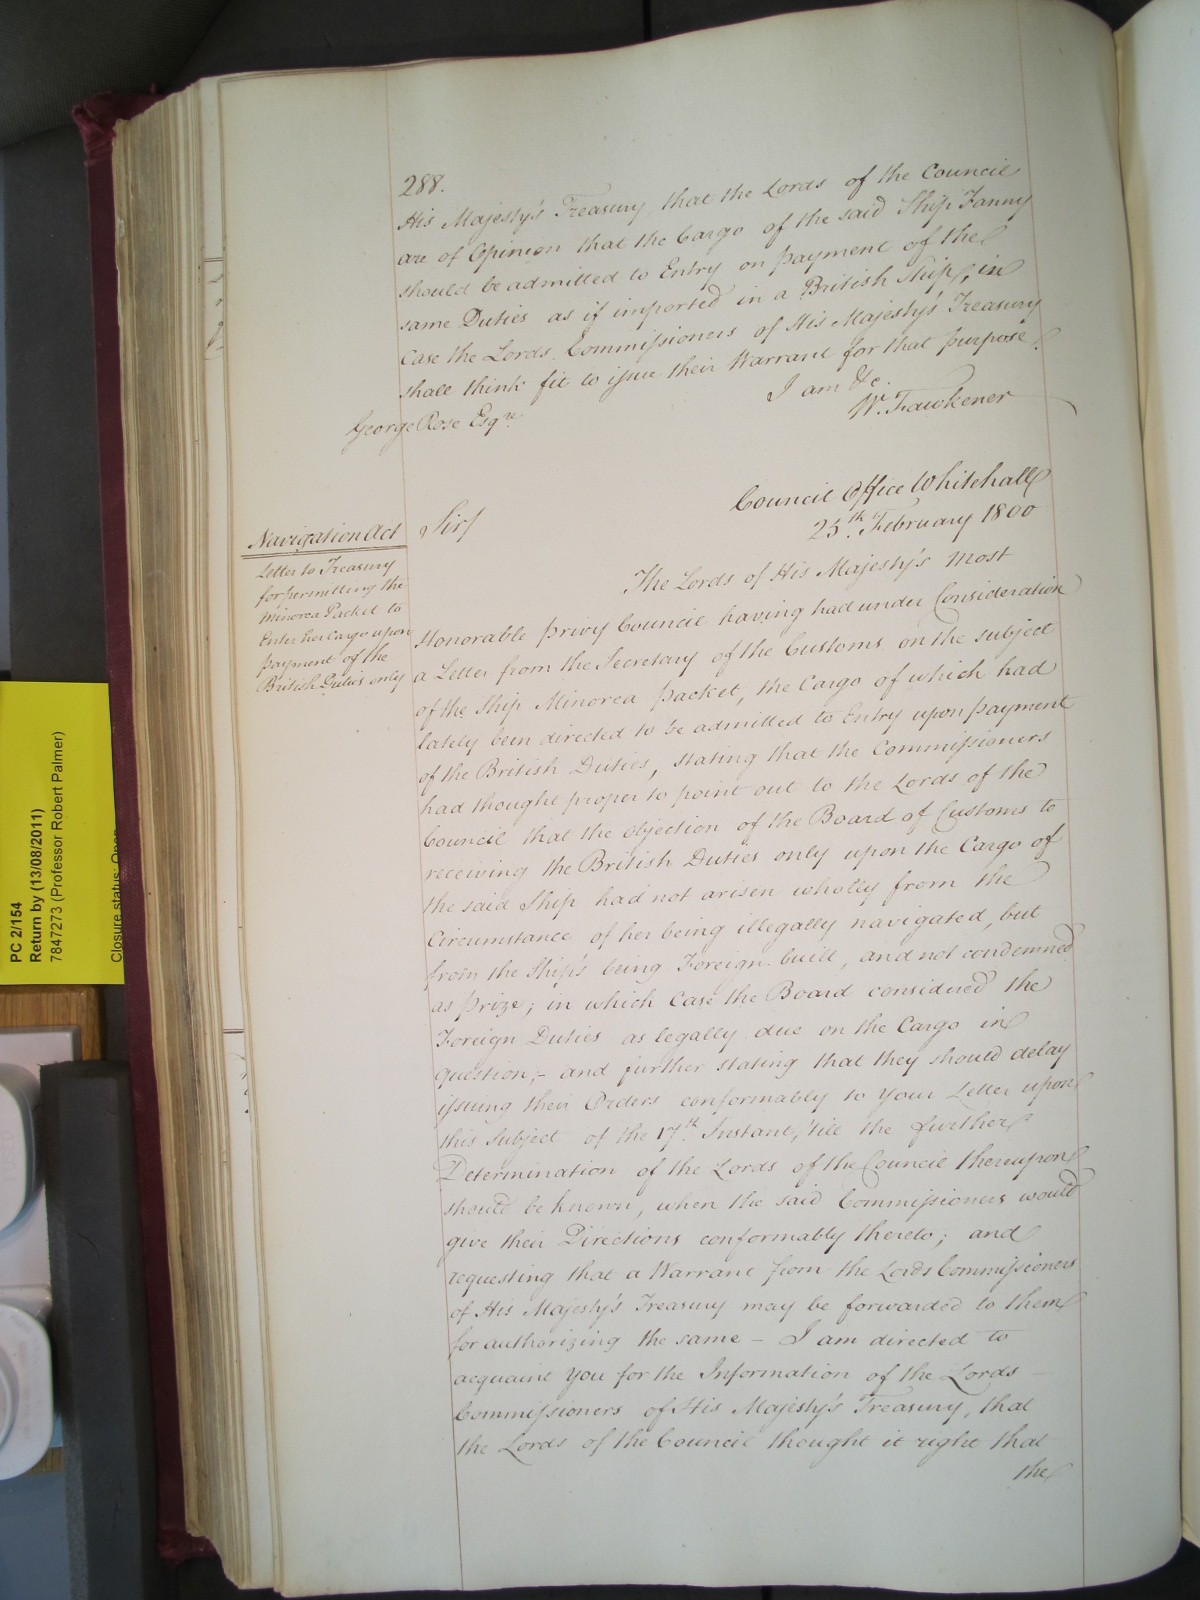 288.
His Majesty's Treasury, that the Lords of the Council
are of Opinion that the Cargo of the said Ship Fanny
should be admitted to Entry on payment of the
same Duties as if imported in a British Ship, in
Case the Lords Commissioners of His Majesty's Treasury
shall think fit to issue their Warrant for that purpose.
I am &c.
W. Fawkener
George Rose Esqre.
Council Office Whitehall
25th. February 1800
Navigation Act
Letter to Treasury
for permitting the
Minorca Packet to
Enter her Cargo upon
payment of the
British Duties only
Sir/
The Lords of His Majesty's most
Honorable Privy Council having had under Consideration
a Letter from the Secretary of the Customs on the subject
of the Ship Minorca Packet, the Cargo of which had
lately been directed to be admitted to Entry upon payment
of the British Duties, stating that the Commissioners
had thought proper to point out to the Lords of the
Council that the objection of the Board of Customs to
receiving the British Duties only upon the Cargo of
the said Ship had not arisen wholly from the
Circumstance of her being illegally navigated, but
from the Ship's being Foreign built, and not condemned
as Prize; in which Case the Board considered the
Foreign Duties as legally due on the Cargo in
question;- and further stating that they should delay
issuing their Orders conformably to Your Letter upon
this Subject of the 17th. Instant, 'till the further
Determination of the Lords of the Council thereupon
should be known, when the said Commissioners would
give their Directions conformably thereto; and
requesting that a Warrant from the Lords Commissioners
of His Majesty's Treasury may be forwarded to them
for authorizing the same - I am directed to
acquaint You for the Information of the Lords -
Commissioners of His Majesty's Treasury, that
the Lords of the Council thought it right that
the
PC 2/154
Return by (13/08/2011)
7847273 (Professor Robert Palmer)
Closure status: Open